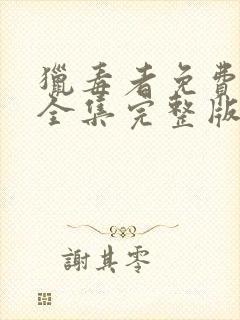 獵毒者免費
全集完整版
謝其零